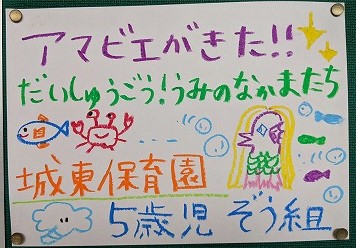 アマビエがきた!!
だいしゅうごう!うみのなかまたち
城東保育園
5歳児 ぞう組